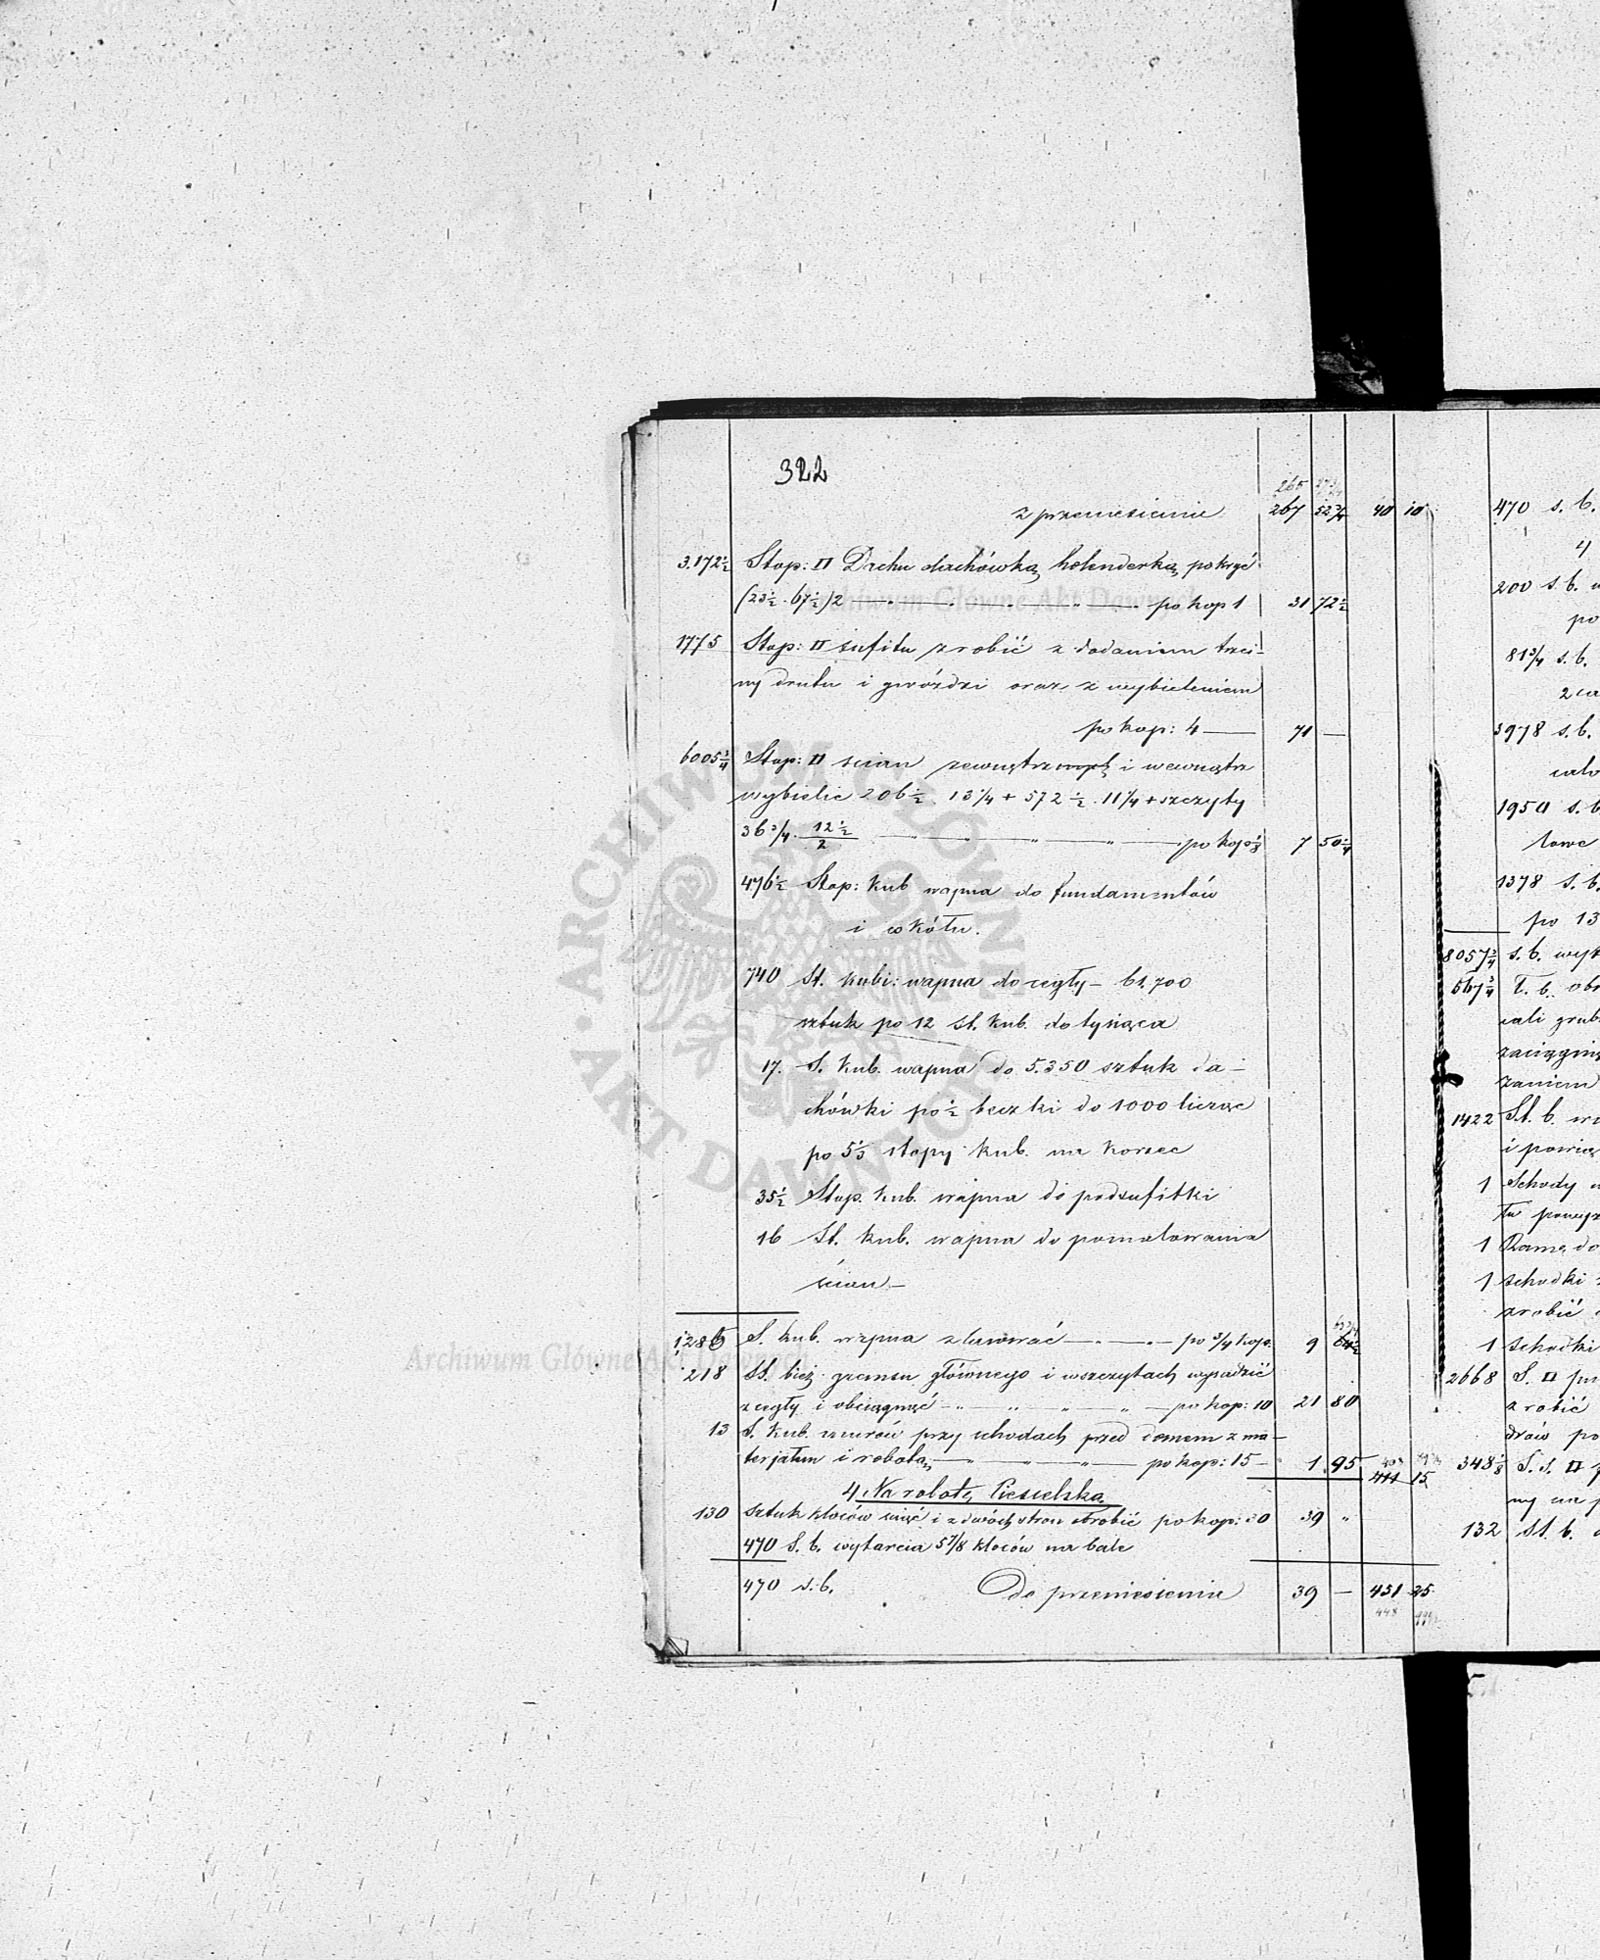 322
265
z przeniesienia 267 52 3/4 40 10
3.172 1/2 Stop: □ Dachu dachówką holenderką pokryć
(23 1/2 . 67 1/2) 2 — " — " — " — po kop 1 31 72 1/2
1775 Stop: □ sufitu zrobić z dodaniem trzci-
ny drutu i gwóździ oraz z wybieleniem
po kop: 4 — 71 —
6005 1/4 Stop: □ scian zewnątrz i wewnątrz
wybielic 206 1/2 . 13 1/4 + 572 1/2 . 11 1/4 + szczyty
36 3/4 . 12 1/2 / 2 — " — " — po kop 1/8 7 50 1/4
476 1/2 Stop: kub wapna do fundamentów
i cokółu.
740 St. kubi: wapna do cegły – 61.700
sztuk po 12 st. kub. do tysiąca
17. S. kub. wapna do 5.350 sztuk da-
chówki po 1/2 beczki do 1000 licząc
po 5 1/3 stopy kub. na korzec
35 1/2 Stop. kub. wapna do podsufitki
16 St. kub. wapna do pomalowania
ścian –
1286 S. kub. wapna zlasować — " — po 3/4 kop. 9 64 1/2
218 St. bież. gzemsu głównego i w szczytach wysadzić
z cegły i obciągnąć – " — " — " — po kop: 10 21 80
13 S. kub. murów przy schodach przed domem z ma-
terjałem i robotą — " — " — po kop: 15 – 1 95 411 15
4 Na robotę Ciesielską
130 sztuk kloców ściąć i z dwóch stron obrobić po kop: 30 39 "
470 S. b. wytarcia 5 7/8 kloców na bale
470 s. b. Do przeniesienia 39 — 451 25
448
470 s. b.
4
200 s. b.
po
81 3/4 s. b.
3978 s. b.
1950 s. b
1378 s. b.
po 13
8057 3/4 s. b.
567 3/4 T. b.
cali grub
zaciągnię
zaniem
1422 St. b.
1 Schody
1 Ramę do
1 schodki
zrobić
1 schodki
2668 S. □
zrobić
po
348 1/8 S. s. □
ny na
132 st. b.
Archiwum Główne Akt Dawnych
Archiwum Główne Akt Dawnych
ARCHIWUM GŁÓWNE · AKT DAWNYCH ·